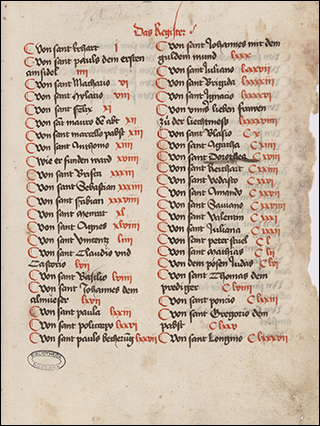 Das Register
Von sant Erhart I
Von sant pauls dem ersten
ainsidel IIII
Von sant Machario VI
Von sant Hylario VIII
Von sant felix XI
Von sant mauro dē abt XII
Von sant marcello pabst XII
Von sant Anthonio XIII
Wie er funden ward XVIII
Von sant Brisca
Von sant Sebastian XXXIII
Von sant fabian XXXVIII
Von sant XL
Von sant Agnes XLVIII
Von sant Vincentz LIII
Von sant Claudio vnd
Castorio LVII
Von sant Basilio LVIII
Von sant Johannes dem
almůser LXVII
Von sant paula LXXIII
Von sant policarpo LXXVI
Von sant pauls bekerūg LXXVII
Von sant Johannes mit dem
guldem mund LXXX
Von sant Juliano
Von sant Brigida
Von sant Ignacio
Von vnns lieben frawen
zů der liechtmess
Von sant Blasio C X
Von sant Agatha C XIII
Von sant Dorothea C XVIII
Von sant
Von sant Vedasto C XXVI
Von sant Amando C XXVI
Von sant
Von sant Valentin C XXXI
Von sant Juliana C XXXI
Von sant peter stuel C L
Von sant mathias C LI
Von dem posen Judas C LI
Von sant Thomas dem
prediger C LVIII
Von sant poncio C LXXI
Von sant Gregorio dem
pabst C LXXV
Von sant Longino C LXXXVII